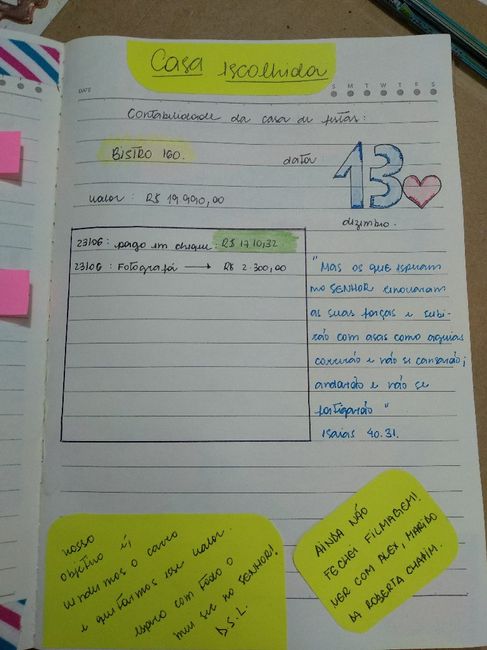 Casa Escolhida
DATE
S M T W T F S
Contabilidade da casa de festas:
BISTRO 160.
data
13
dizembro.
Valor: R$ 19.990,00
23/06: pago em cheque: R$ 1710,32
23/06: Fotografá → R$ 2.300,00
"Mas os que esperam
no SENHOR renovaram
as suas forças e subi-
rão com asas como águias
correrão e não se cansarão;
andarão e não se
fatigarão"
Isaías 40.31.
nosso
objetivo é,
vendermos o carro
e quitarmos esse valor.
espero com todo o
meu ser no SENHOR!
D.S.L.
AINDA NÃO
FECHEI FILMAGEM!
VER COM ALEX, MARIDO
DA ROBERTA CHAHIM.